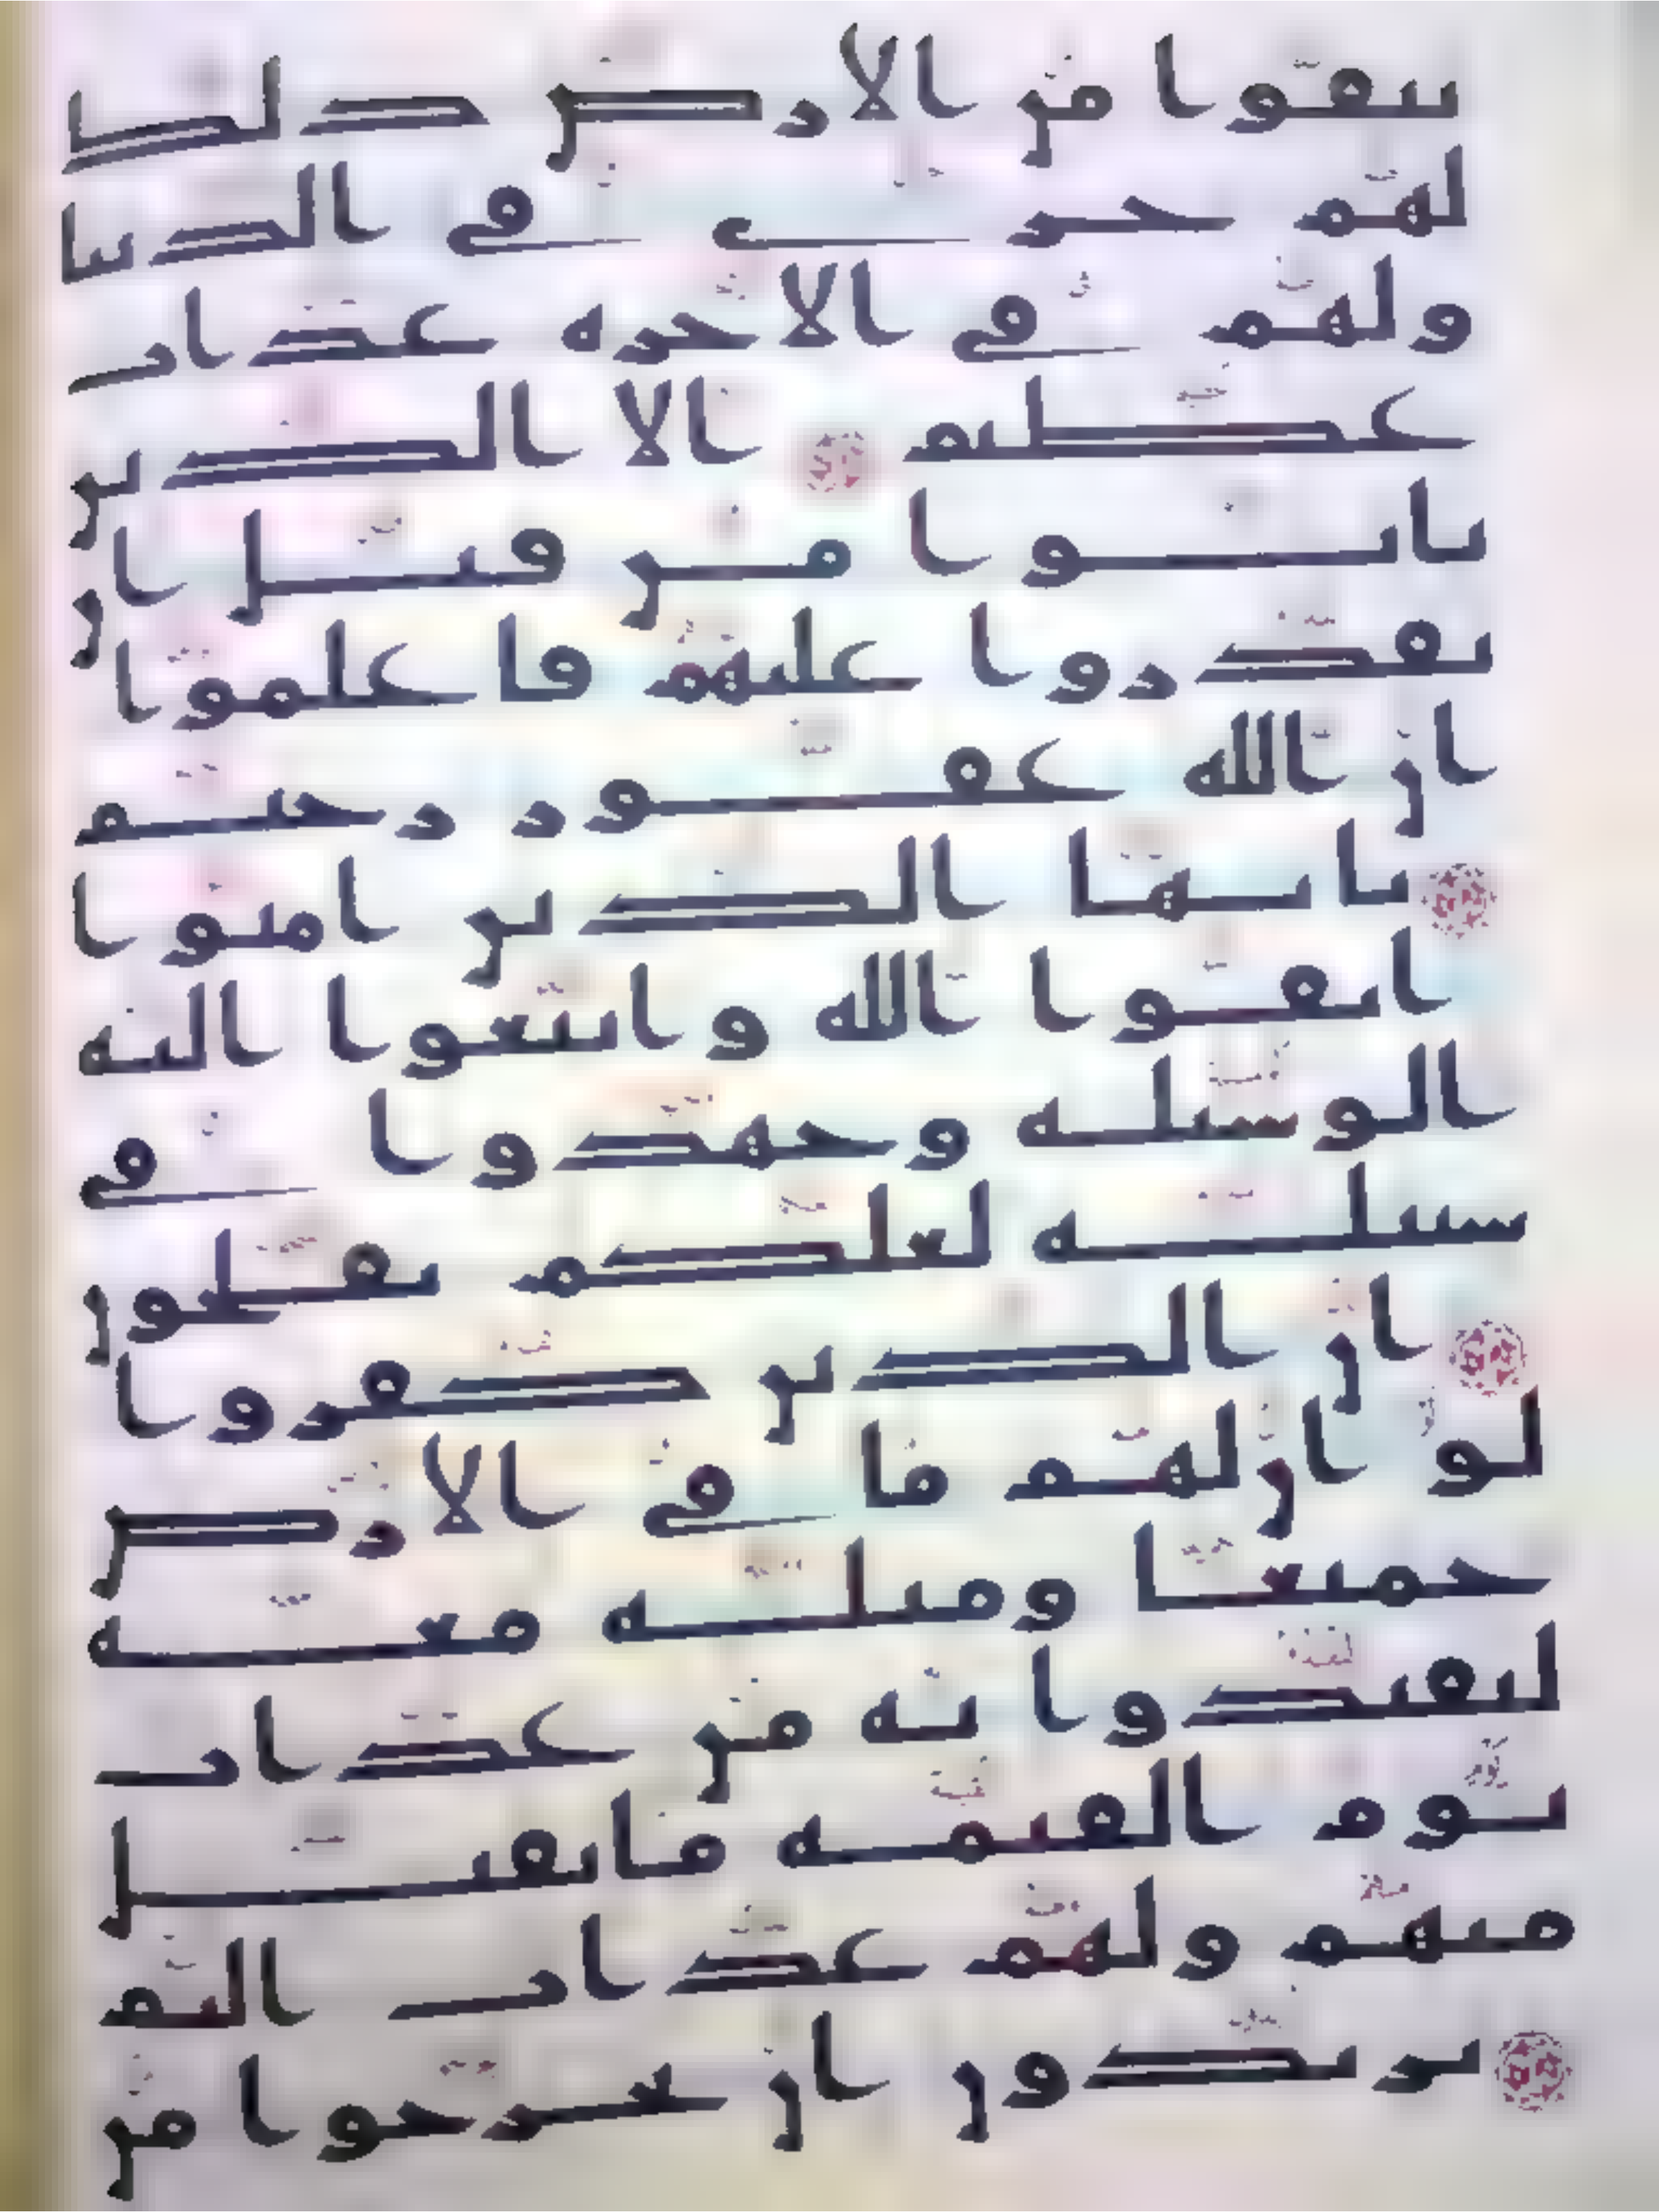 ينفوا من الارض ذلك
لهم خزي في الدنيا
ولهم في الاخرة عذاب
عظيم الا الذين
تابوا من قبل ان
تقدروا عليهم فاعلموا
ان الله غفور رحيم
يايها الذين امنوا
اتقوا الله وابتغوا اليه
الوسيلة وجهدوا في
سبيله لعلكم تفلحون
ان الذين كفروا
لو ان لهم ما في الارض
جميعا ومثله معه
ليفتدوا به من عذاب
يوم القيمة ما تقبل
منهم ولهم عذاب اليم
يريدون ان يخرجوا من